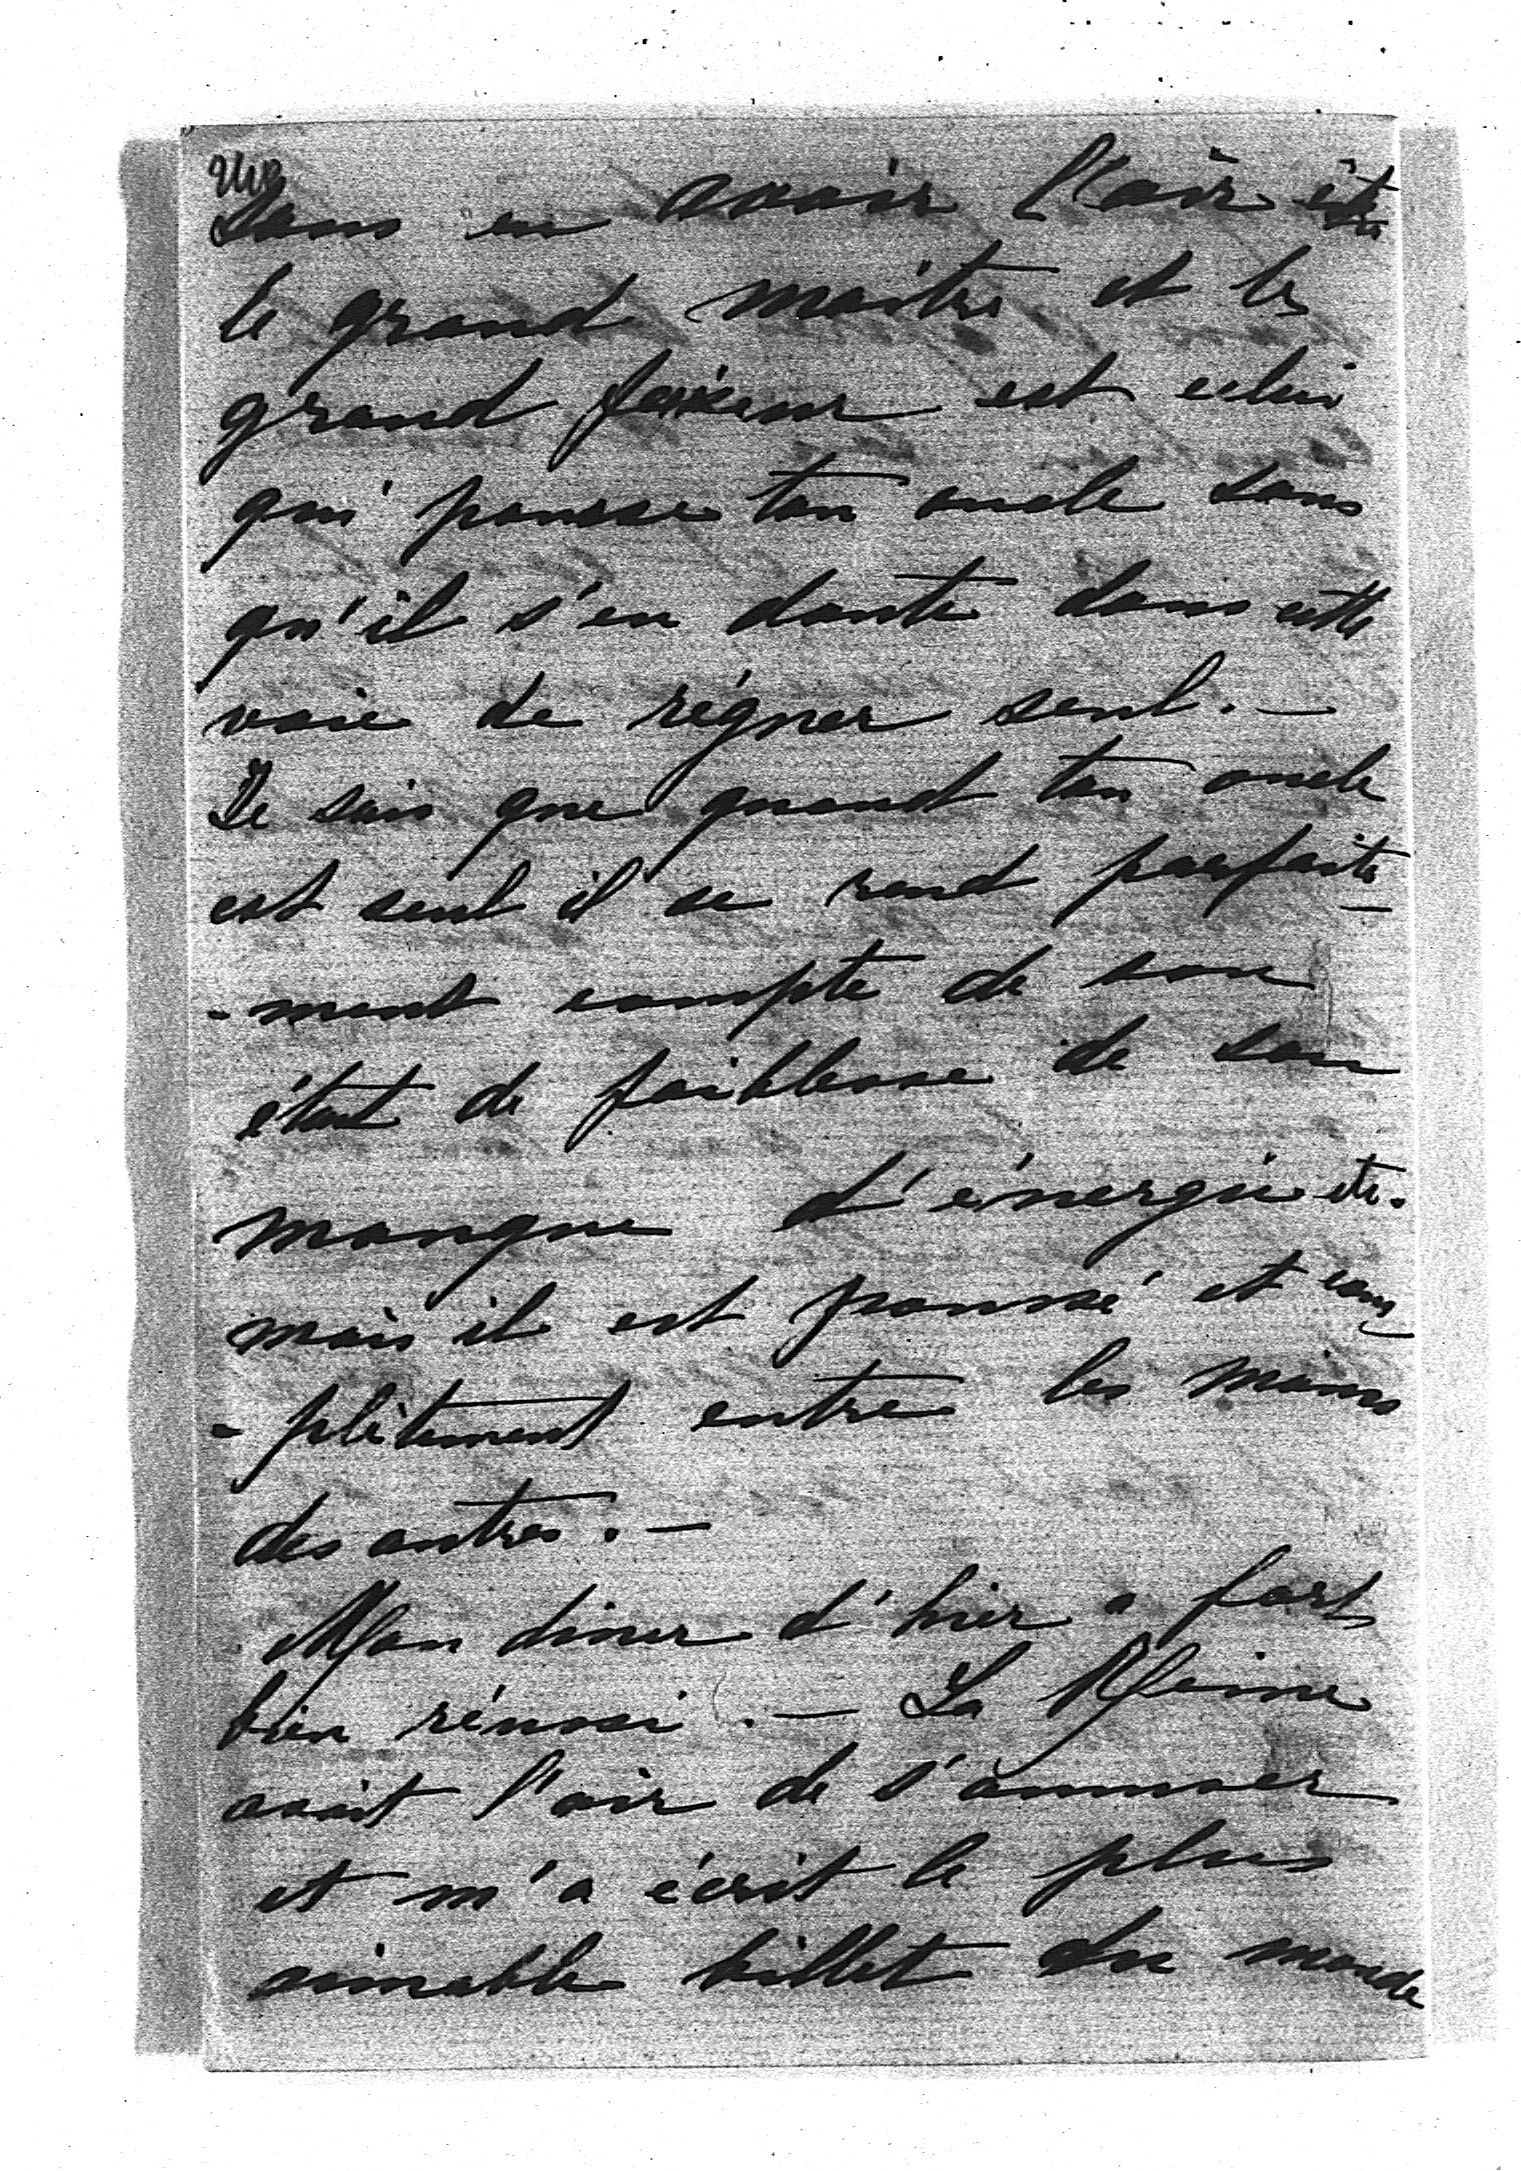 sans en avoir l'air être
le grand maître et le
grand faiseur est celui
qui pousse ton oncle sans
qu'il s'en doute dans cette
voie de régner seul. —
Je sais que quand ton oncle
est seul il se rend parfaite-
-ment compte de son
état de faiblesse de son
manque d'énergie etc.
mais il est poussé et com-
-plètement entre les mains
des autres. —
Mon diner d'hier a fort
bien réussi. — La Reine
avait l'air de s'amuser
et m'a écrit le plus
aimable billet du monde